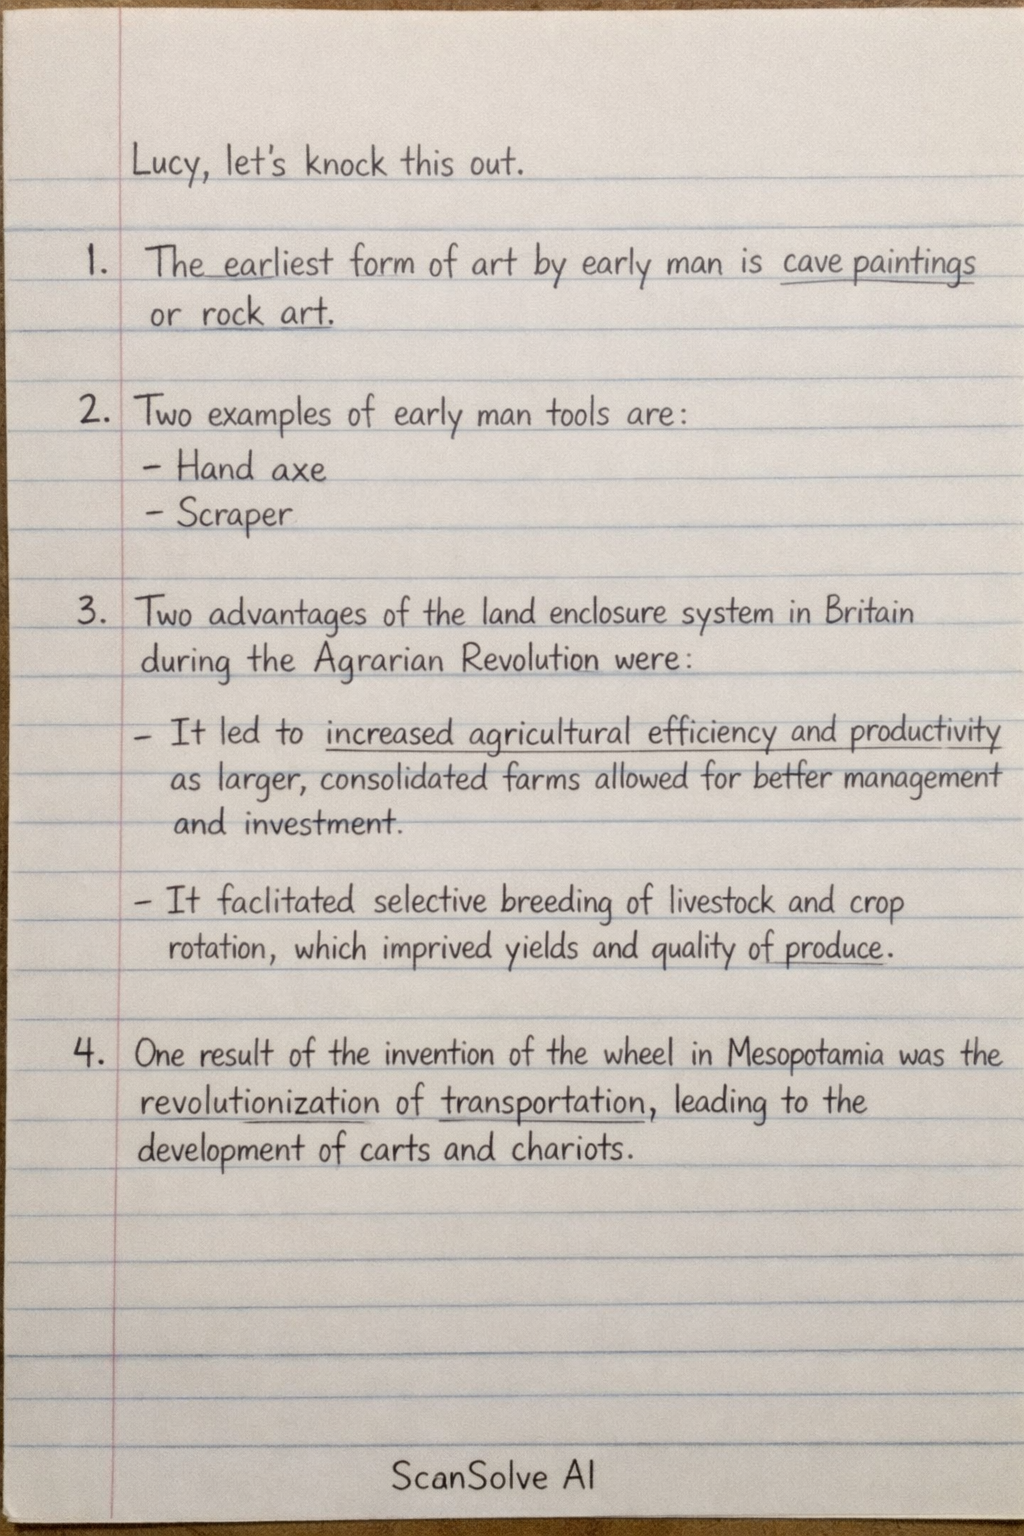 Lucy, let's knock this out.
1. The earliest form of art by early man is cave paintings
or rock art.
2. Two examples of early man tools are:
- Hand axe
- Scraper
3. Two advantages of the land enclosure system in Britain
during the Agrarian Revolution were:
- It led to increased agricultural efficiency and productivity
as larger, consolidated farms allowed for better management
and investment.
- It faclitated selective breeding of livestock and crop
rotation, which imprived yields and quality of produce.
4. One result of the invention of the wheel in Mesopotamia was the
revolutionization of transportation, leading to the
development of carts and chariots.
ScanSolve AI